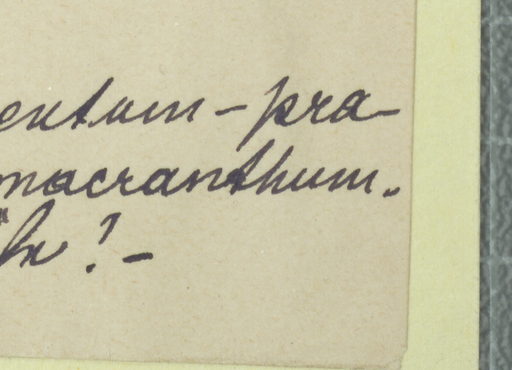 entum-pra-
macranthum.
! -